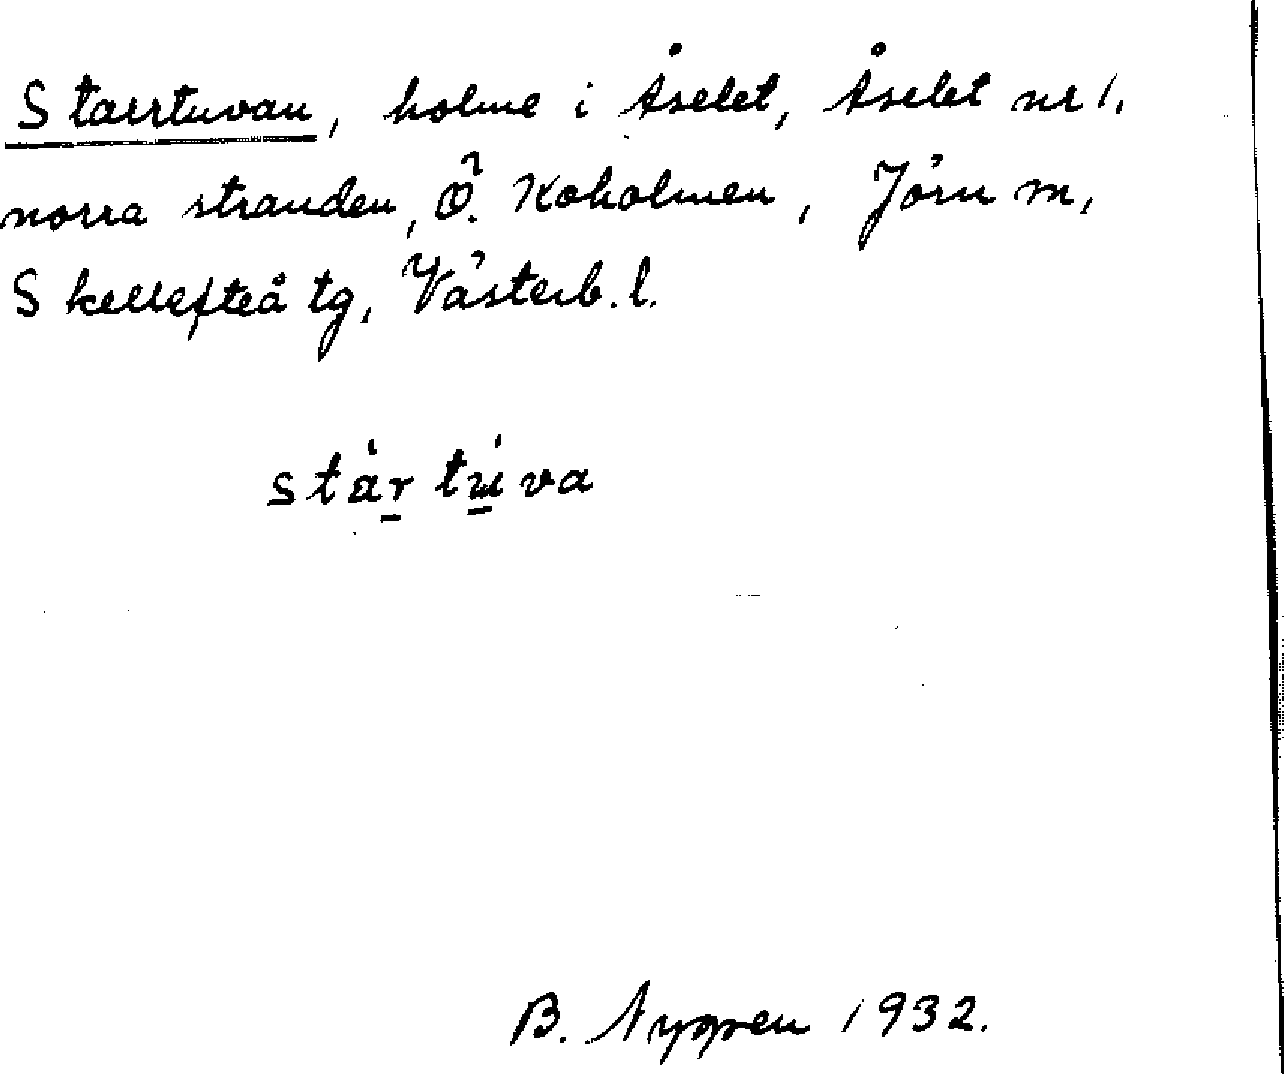 Starrtuvan, holme i Åselet, Åselet nr 1.
norra stranden, Ö. Koholmen, Jörn m,
Skellefteå tg, Västerb. l.
stàr túva
B. Nygren 1932.